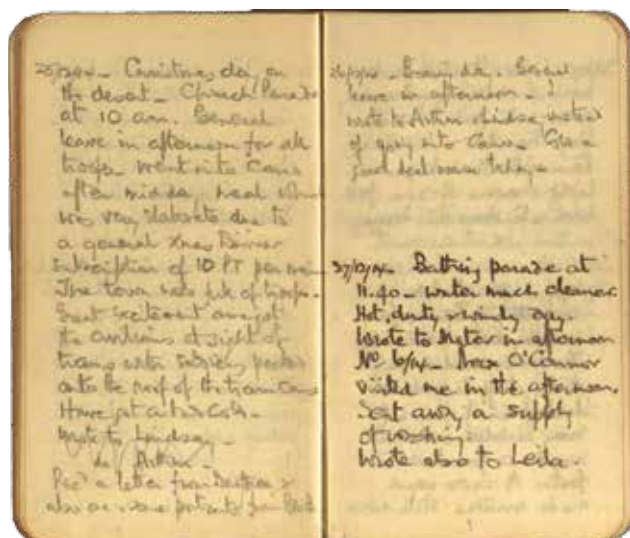 25/12/14 - Christmas day on
the desert - Church Parade
at 10 am. General
leave in afternoon for all
troops - went into Cairo
after midday meal which
was very elaborate due to
a general Xmas Dinner
subscription of 10 PT per man
The town was full of troops -
Great excitement amongst
the civilians at sight of
trams with soldiers
onto the roof of the tram cars
Have got a
Wrote to Lindsay -
do Arthur -
Recd a letter from
also
26/12/14 - Boxing day. General
leave in afternoon - I
wrote to Arthur Lindsay instead
of going into Cairo -
good deal
27/12/14 - Bathing parade at
11.40 - water much cleaner
Hot, dusty & windy day.
Wrote to Mater in afternoon
No 6/14 - O'Connor
visited me in the afternoon.
Sent away a supply
of washing
Wrote also to Leila.